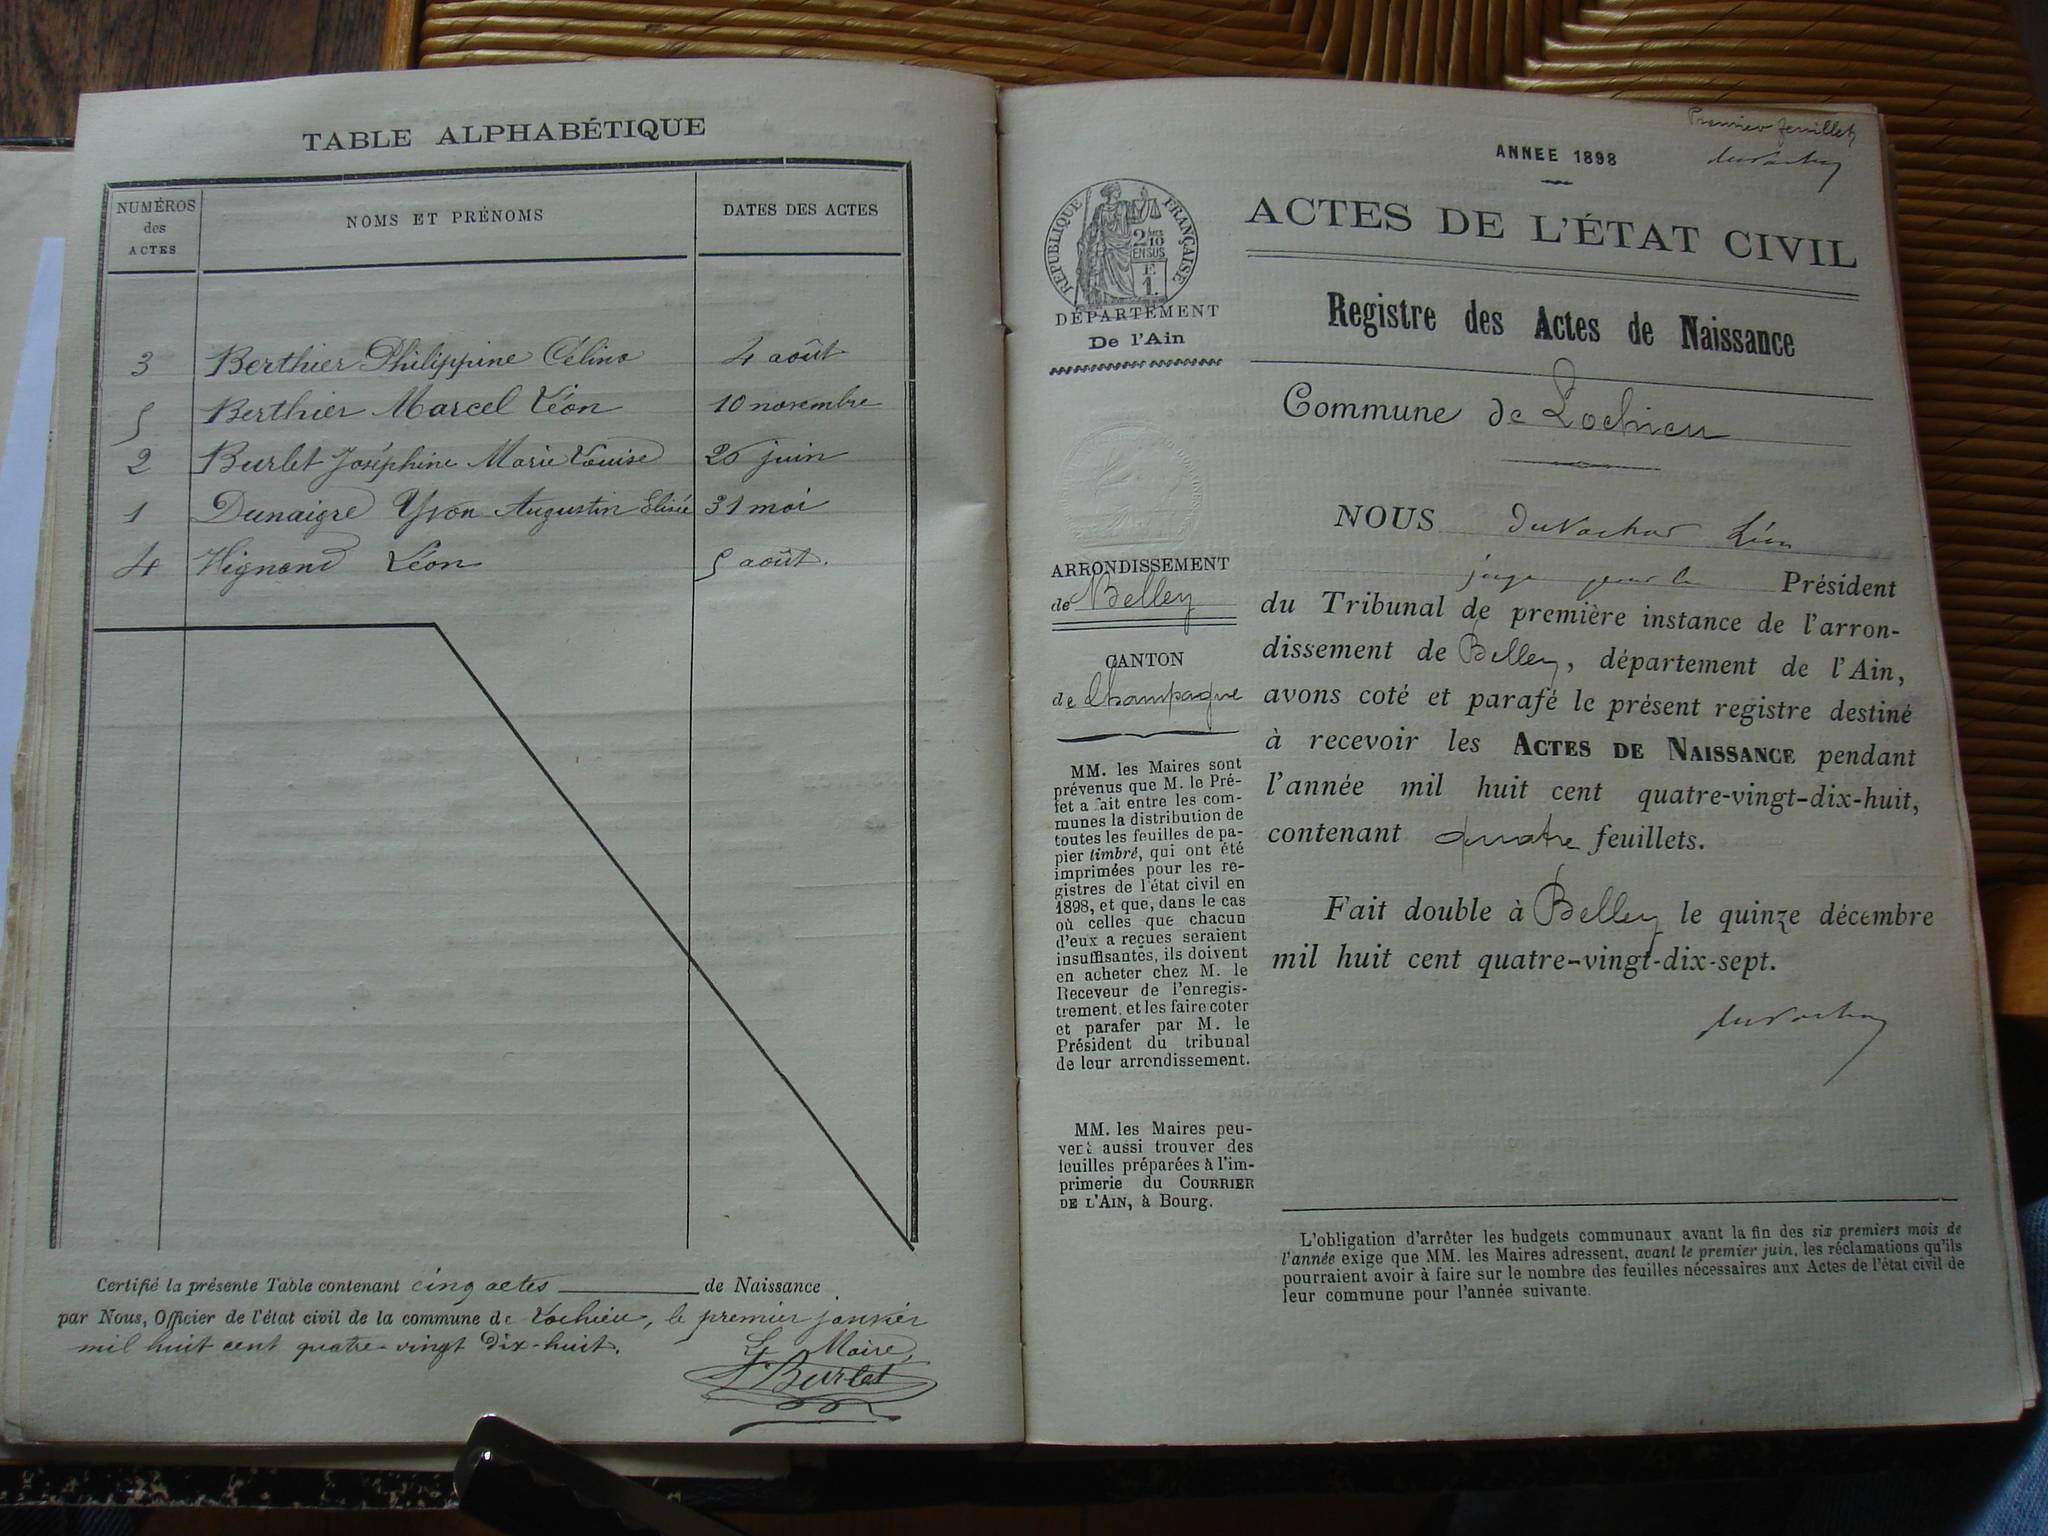 TABLE ALPHABÉTIQUE
NUMÉROS
des
ACTES
NOMS ET PRÉNOMS
DATES DES ACTES
3 Berthier Philippine Célina 4 août
5 Berthier Marcel Léon 10 novembre
2 Burlet Joséphine Marie Louise 26 juin
1 Dunaigre Yvon Augustin Elisée 31 mai
4 Hignond Léon 5 août.
Certifié la présente Table contenant cinq actes de Naissance
par Nous, Officier de l'état civil de la commune de Lochieu, le premier janvier
mil huit cent quatre-vingt dix-huit.
Le Maire,
Burlet
Premier feuillet
ANNEE 1898
RÉPUBLIQUE FRANÇAISE
2/10
EN SUS
F.
1.
DÉPARTEMENT
De l'Ain
ARRONDISSEMENT
de Belley
CANTON
de Champagne
MM. les Maires sont
prévenus que M. le Pré-
fet a fait entre les com-
munes la distribution de
toutes les feuilles de pa-
pier timbré, qui ont été
imprimées pour les re-
gistres de l'état civil en
1898, et que, dans le cas
où celles que chacun
d'eux a reçues seraient
insuffisantes, ils doivent
en acheter chez M. le
Receveur de l'enregis-
trement, et les faire coter
et parafer par M. le
Président du tribunal
de leur arrondissement.
MM. les Maires peu-
vent aussi trouver des
feuilles préparées à l'im-
primerie du COURRIER
DE L'AIN, à Bourg.
ACTES DE L'ÉTAT CIVIL
Registre des Actes de Naissance
Commune de Lochieu
NOUS Léon
juge pour le Président
du Tribunal de première instance de l'arron-
dissement de Belley, département de l'Ain,
avons coté et parafé le présent registre destiné
à recevoir les ACTES DE NAISSANCE pendant
l'année mil huit cent quatre-vingt-dix-huit,
contenant quatre feuillets.
Fait double à Belley le quinze décembre
mil huit cent quatre-vingt-dix-sept.
L'obligation d'arrêter les budgets communaux avant la fin des six premiers mois de
l'année exige que MM. les Maires adressent, avant le premier juin, les réclamations qu'ils
pourraient avoir à faire sur le nombre des feuilles nécessaires aux Actes de l'état civil de
leur commune pour l'année suivante.